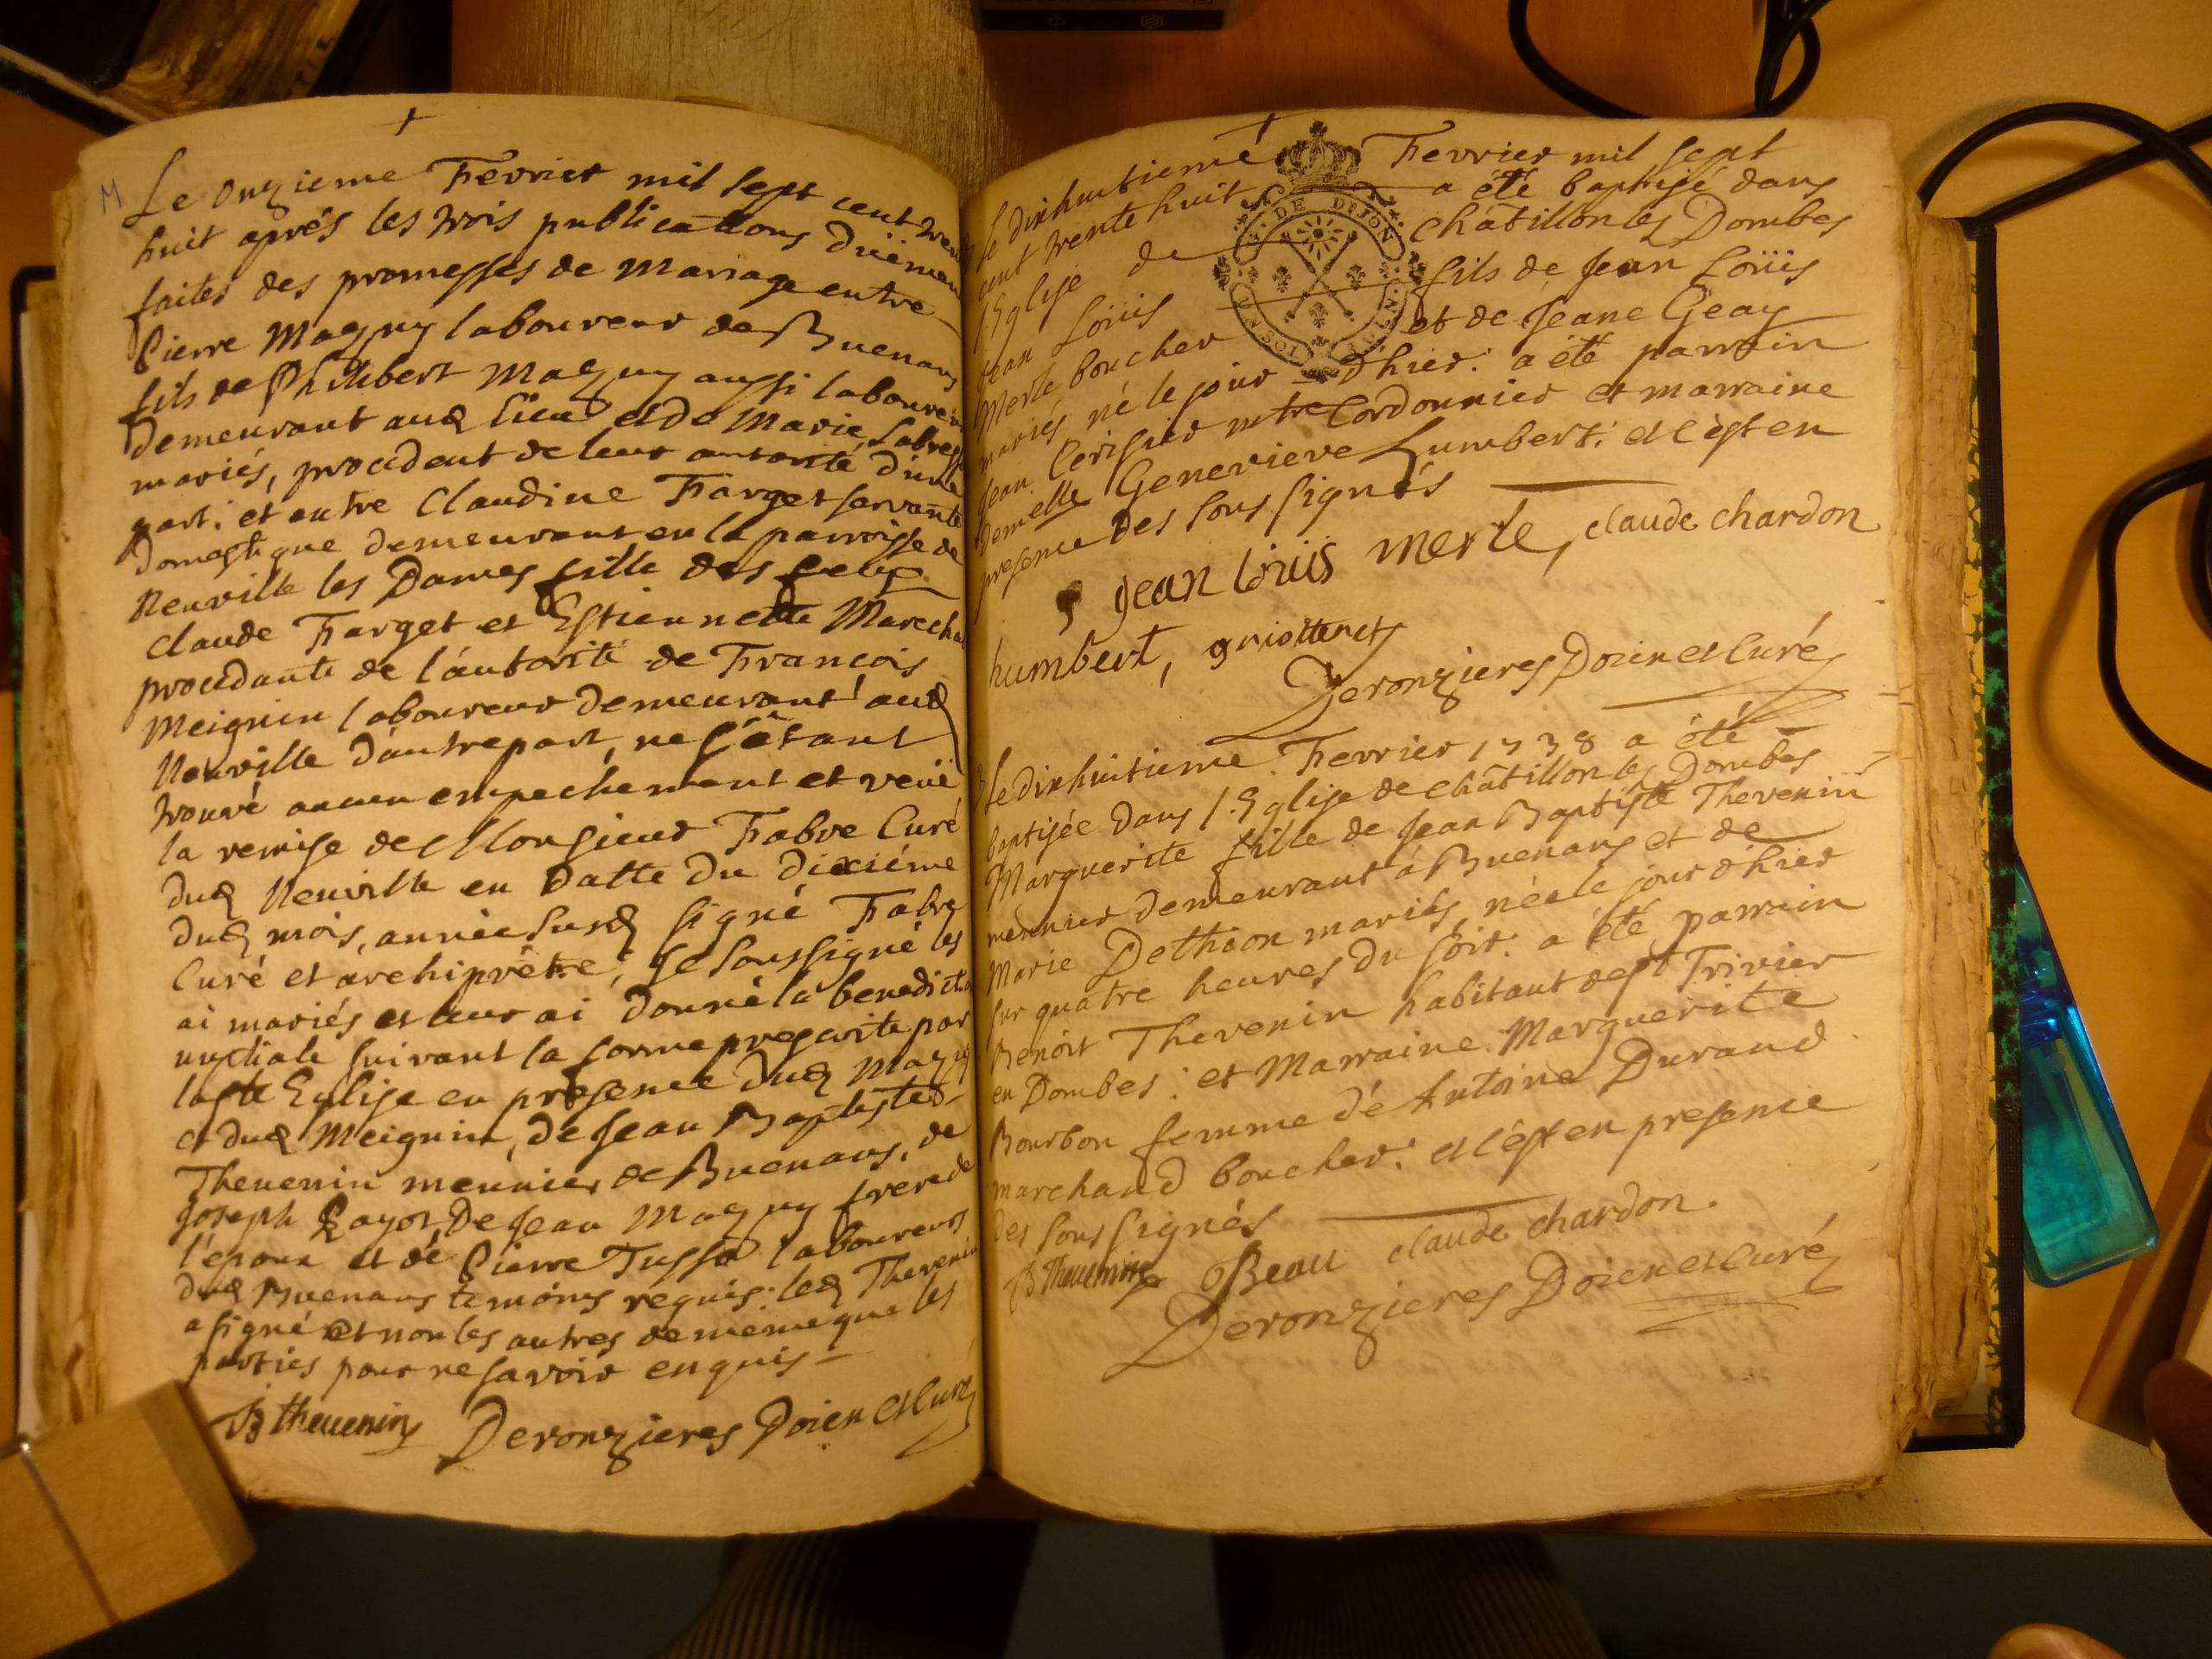 M
Le onzieme Fevrier mil sept cent tren
huit aprés les trois publications düemen
faites des promesses de mariage entre
Pierre Magny laboureur de Buenans
fils de Philibert Magny aussi laboureur
demeurant aud lieu et de Marie Labresse
mariés, procedent de leur autorité d'une
part. et entre Claudine Farget servante
domestique demeurant en la parroisse de
Neuville les Dames fille des feux
Claude Farget et Estiennette Marechal
procedante de l'autorité de François
Meignin laboureur demeurant aud
Neuville d'autrepart, ne s'étant
trouvé aucun empechement et veüe
la remise de Monsieur Fabre Curé
dud Neuville en datte du dixiéme
dud mois, année susd signé Fabre
Curé et archiprêtre, Je soussigné les
ai mariés et leur ai donné la benedict.
nuptiale suivant la forme prescrite par
la ste Eglise en presence dud Magny
et dud Meignin, de Jean Baptiste
Thevenin meunier de Buenans, de
Joseph Rayot, de Jean Magny frere de
l'epoux et de Pierre Tussot laboureurs
dud Buenans temoins requis. led Thevenin
a signé et non les autres de meme que les
parties pour ne savoir enquis
JB thevenin Deronzieres Doien et Curé
le dixhuitieme Fevrier mil sept
cent trente huit a été baptisé dans
l'Eglise de Châtillon les Dombes
Jean Loüis fils de Jean Loüis
Merle boucher et de Jeane Geay
mariés né le jour d'hier. a été parrain
Jean Cerisier mtre Cordonnier et marraine
demelle Genevieve Humbert. et c'est en
presence des sous signés
Jean loüis merle, claude chardon
humbert,
Deronzieres Doien et Curé
le dixhuitieme Fevrier 1738 a été
baptisée dans l'Eglise de Châtillon les Dombes
Marguerite fille de Jean Baptiste Thevenin
meunier demeurant à Buenans et de
Marie Dethion mariés, née le jour d'hier
sur quatre heures du soir. a été parrain
Benoit Thevenin habitant de st Trivier
en Dombes. et Marraine Marguerite
Bourbon femme d'Antoine Durand
marchand boucher. et c'est en presence
des sous signés
JB thevenin Beau claude chardon.
Deronzieres Doien et Curé
DE DIJON